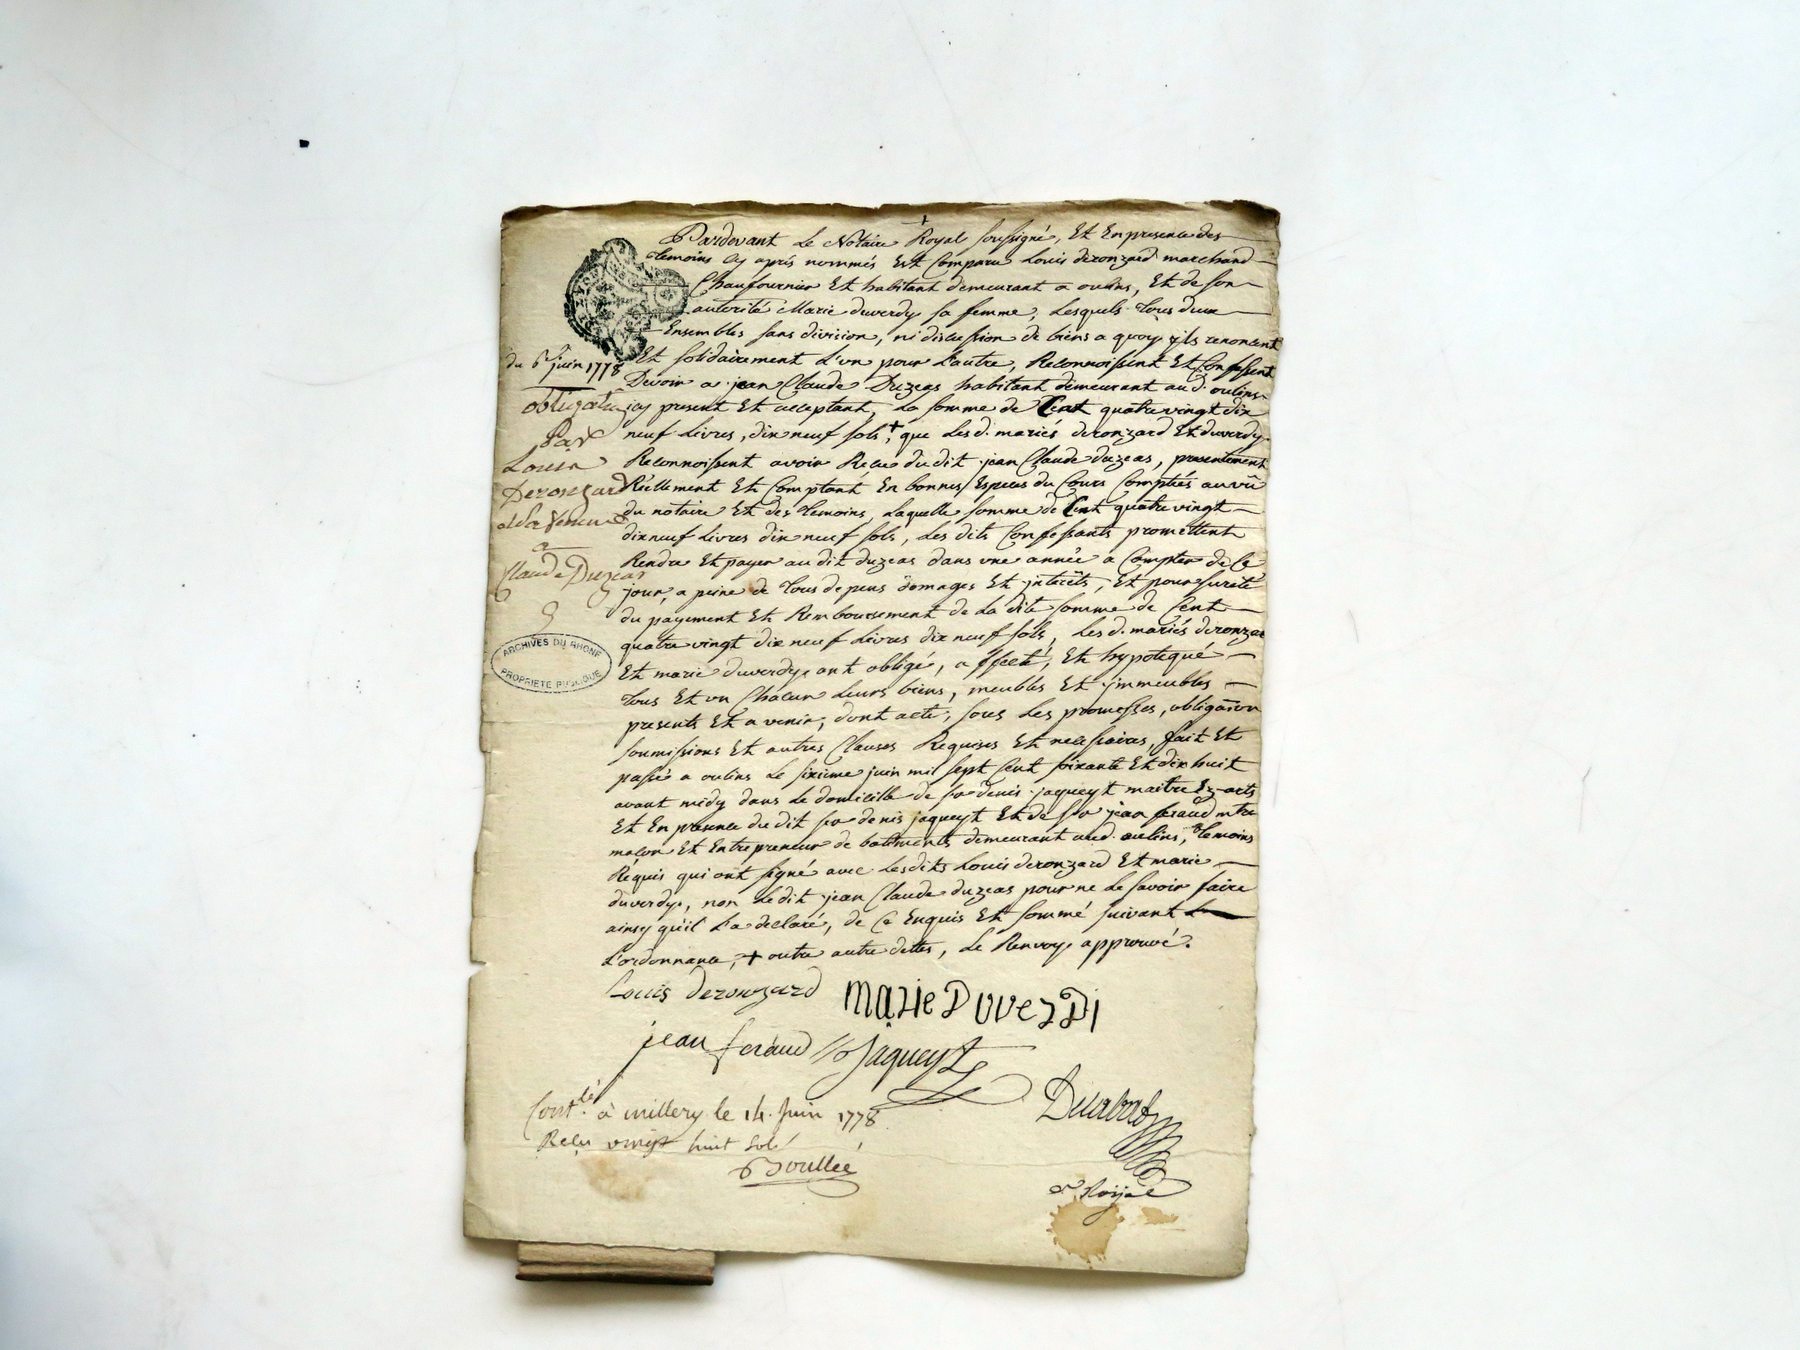 Pardevant Le Notaire Royal soussigné, Et En presence des
temoins cy après nommés Est Comparu Louis deronzard marchand
Chaufournier Et habitant demeurant a oulins, Et de son
autorité Marie duverdy sa femme, Lesquels tous deux
Ensembles sans division, ni discussion de biens a quoy ils renoncent
Et solidairement L'un pour L'autre, Reconnoissent Et Confessent
Devoir a jean Claude Duzeas habitant demeurant aud. oulins
icy present Et acceptant, La somme de Cent quatre vingt dix
neuf Livres, dix neuf sols, + que Les d. mariés deronzard Et duverdy
Reconnoissent avoir Reçu du dit jean Claude duzeas, presentement
Réellement Et Comptant En bonnes Especes du Cours Comptés au vû
du notaire Et des temoins, Laquelle somme de Cent quatre vingt
dix neuf Livres dix neuf sols, Les dits Confessants promettent
Rendre Et payer au dit duzeas dans une année a Compter de Ce
jour, a peine de tous depens domages Et interêts, Et pour sureté
du payement Et Remboursement de La dite somme de Cent
quatre vingt dix neuf Livres dix neuf sols, Les d. mariés deronzar
Et marie duverdy ont obligé, affecté, Et hypotequé
tous Et un Chacun Leurs biens, meubles Et immeubles
presents Et a venir, dont acte, sous Les promesses, obligation
soumissions Et autres Clauses Requises Et necessaires, fait Et
passé a oulins Le sixieme juin mil sept Cent soixante Et dix huit
avant midy dans Le domicille de sr denis jaqueyt maitre Ez-arts
Et En presence du dit sr denis jaqueyt Et de sr jean feraud mtre
maçon Et Entrepreneur de batiments demeurant aud. oulins, temoins
Requis qui ont signé avec Lesdits Louis deronzard Et marie
duverdy, non Le dit jean Claude duzeas pour ne Le savoir faire
ainsy qu'il L'a declaré, de Ce Enquis Et sommé suivant
L'ordonnance, + outre autre dettes, Le Renvoy approuvé.
du 6e juin 1778
obligation
Par
Louis
Deronzard
a
Claude Duzeas
ARCHIVES DU RHONE
PROPRIETE PUBLIQUE
Louis Deronzard
MARIE DUVERDI
jean feraud Jaqueyt
Contlé à millery le 14. Juin 1778
Reçu vingt huit sols
Boullée
Royal